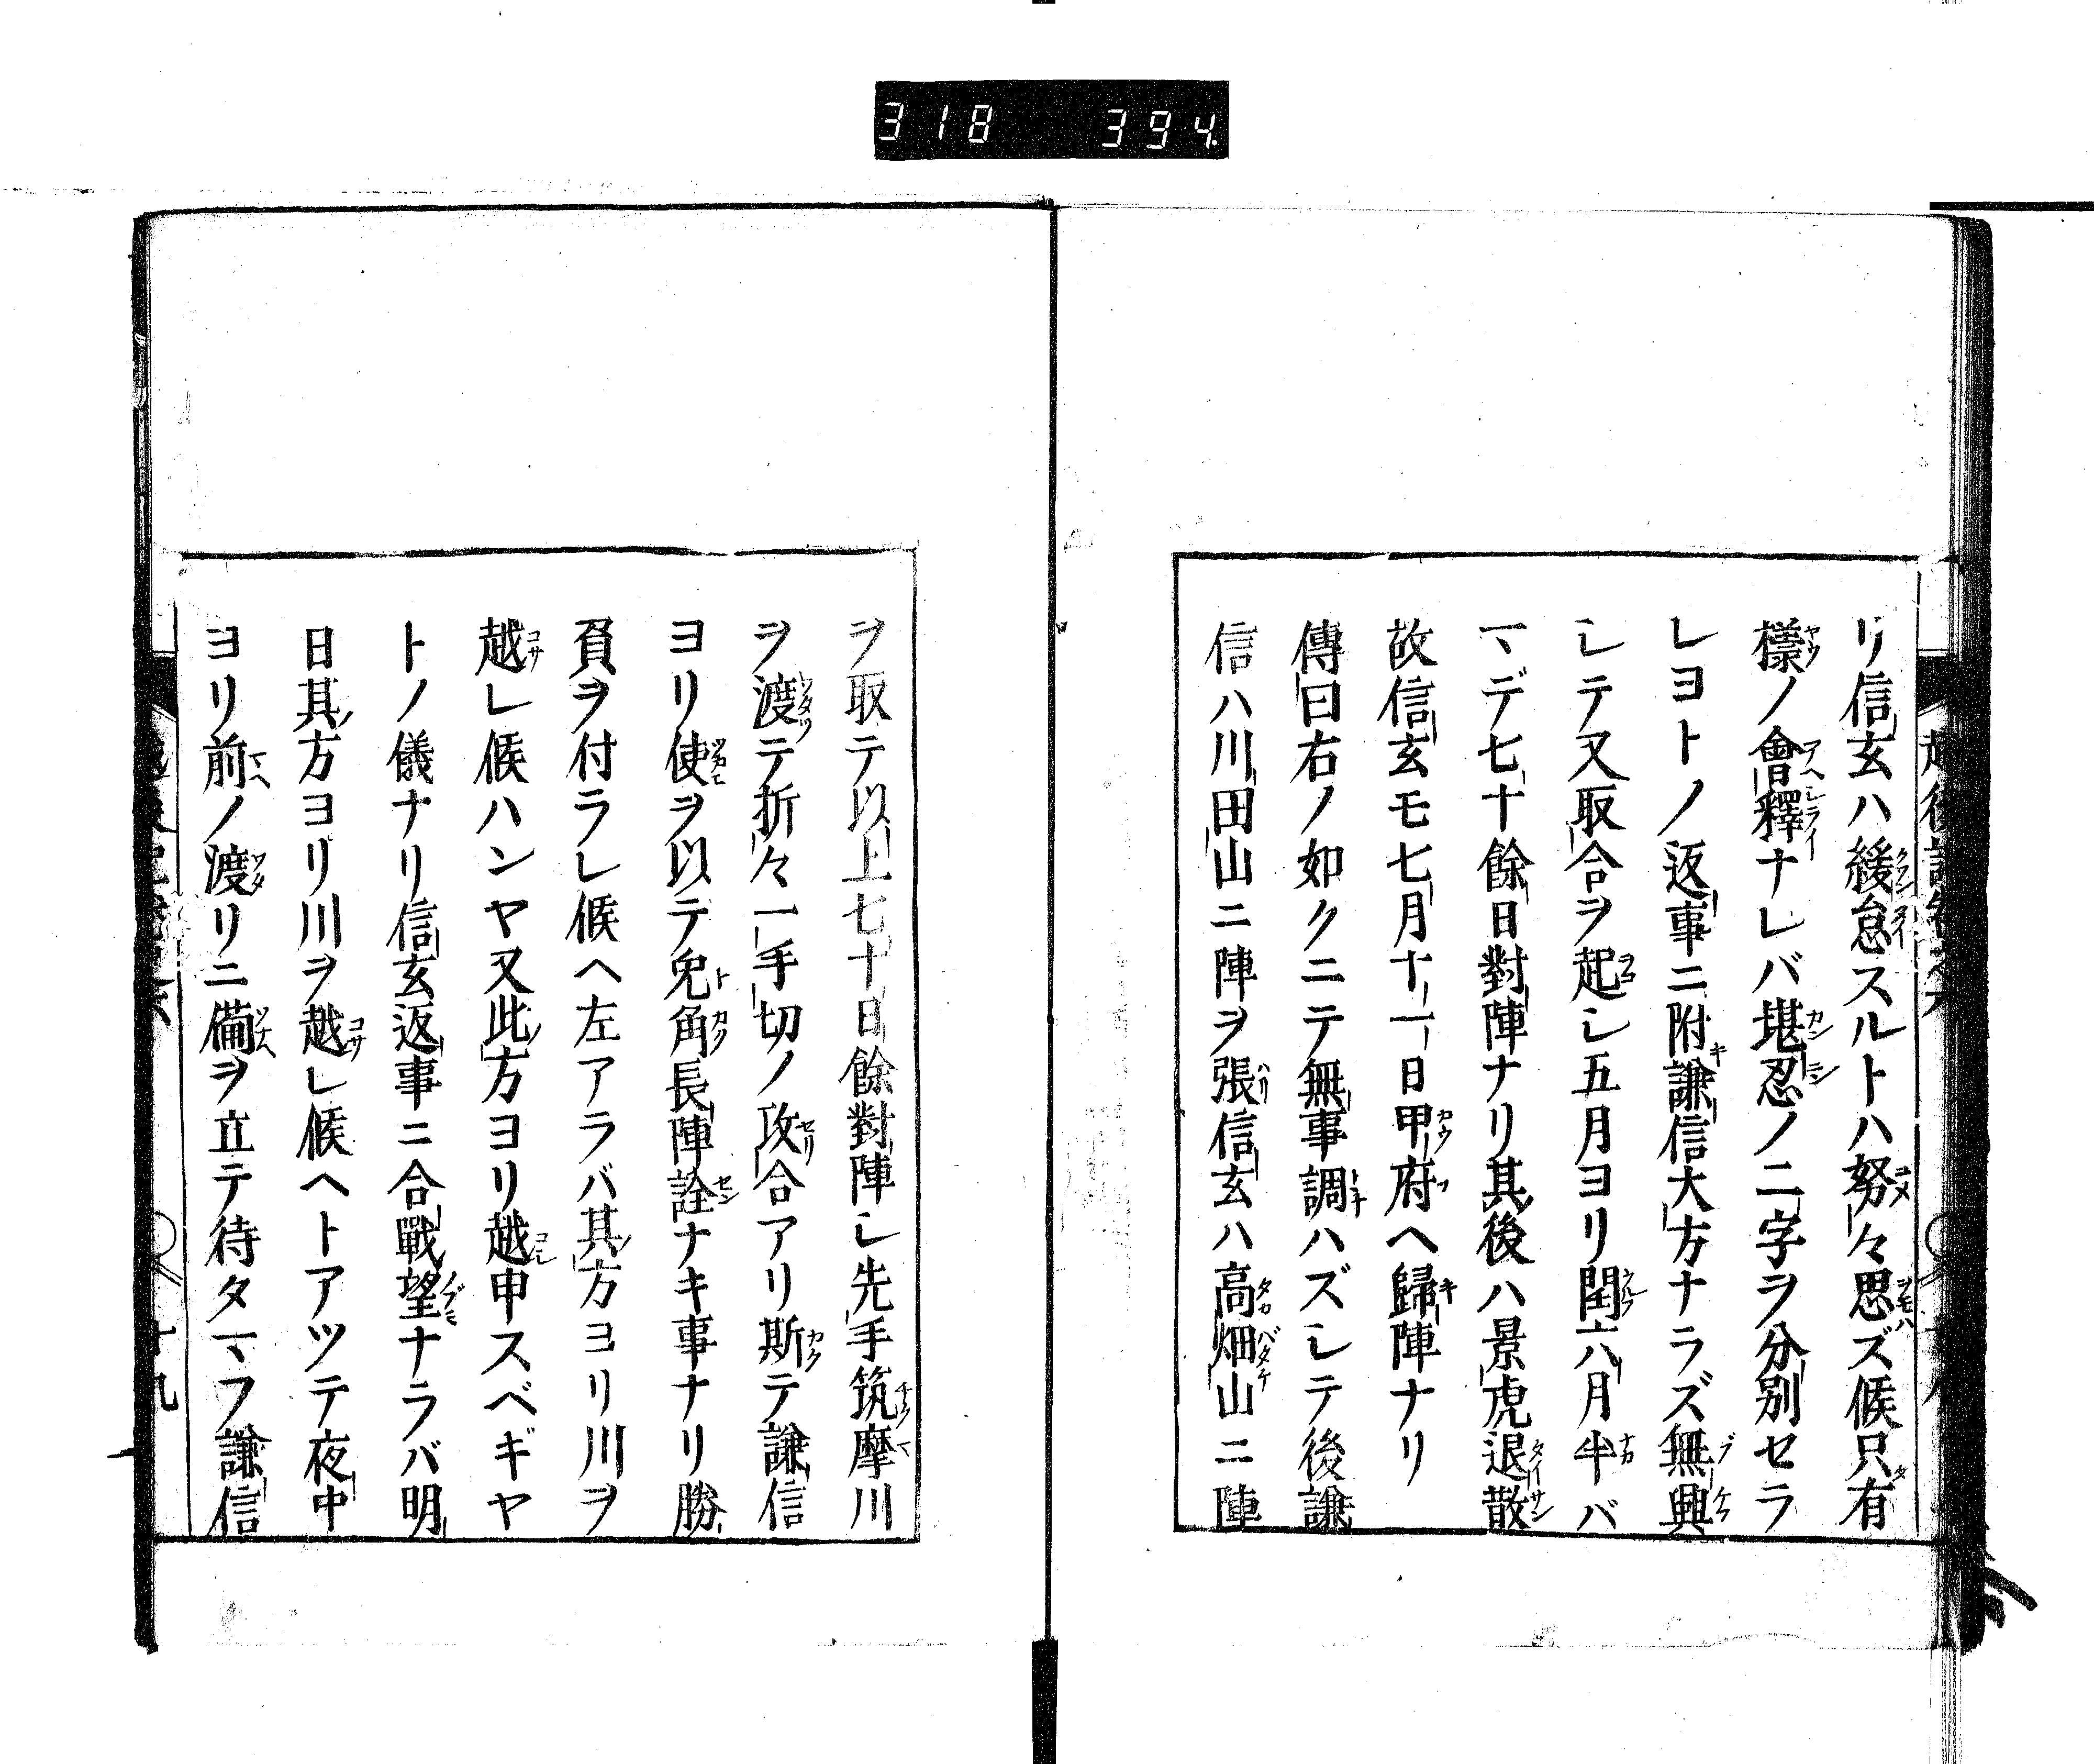 318 394
リ信玄ハ緩怠スルトハ努々思ズ候只有
樣ノ會釋ナレバ堪忍ノ二字ヲ分別セラ
レヨトノ返事ニ附謙信大方ナラズ無興
シテ又取合ヲ起シ五月ヨリ閏六月半バ
マデ七十餘日對陣ナリ其後ハ景虎退散
故信玄モ七月十一日甲府ヘ歸陣ナリ
傳曰右ノ如クニテ無事調ハズシテ後謙
信ハ川田山ニ陣ヲ張信玄ハ高畑山ニ陣
ヲ取テ以上七十日餘對陣シ先手筑摩川
ヲ渡テ折々一手切ノ攻合アリ斯テ謙信
ヨリ使ヲ以テ兔角長陣詮ナキ事ナリ勝
負ヲ付ラレ候ヘ左アラバ其方ヨリ川ヲ
越レ候ハンヤ又此方ヨリ越申スベギヤ
トノ儀ナリ信玄返事ニ合戰望ナラバ明
日其方ヨリ川ヲ越レ候ヘトアツテ夜中
ヨリ前ノ渡リニ備ヲ立テ待タマフ謙信
十九